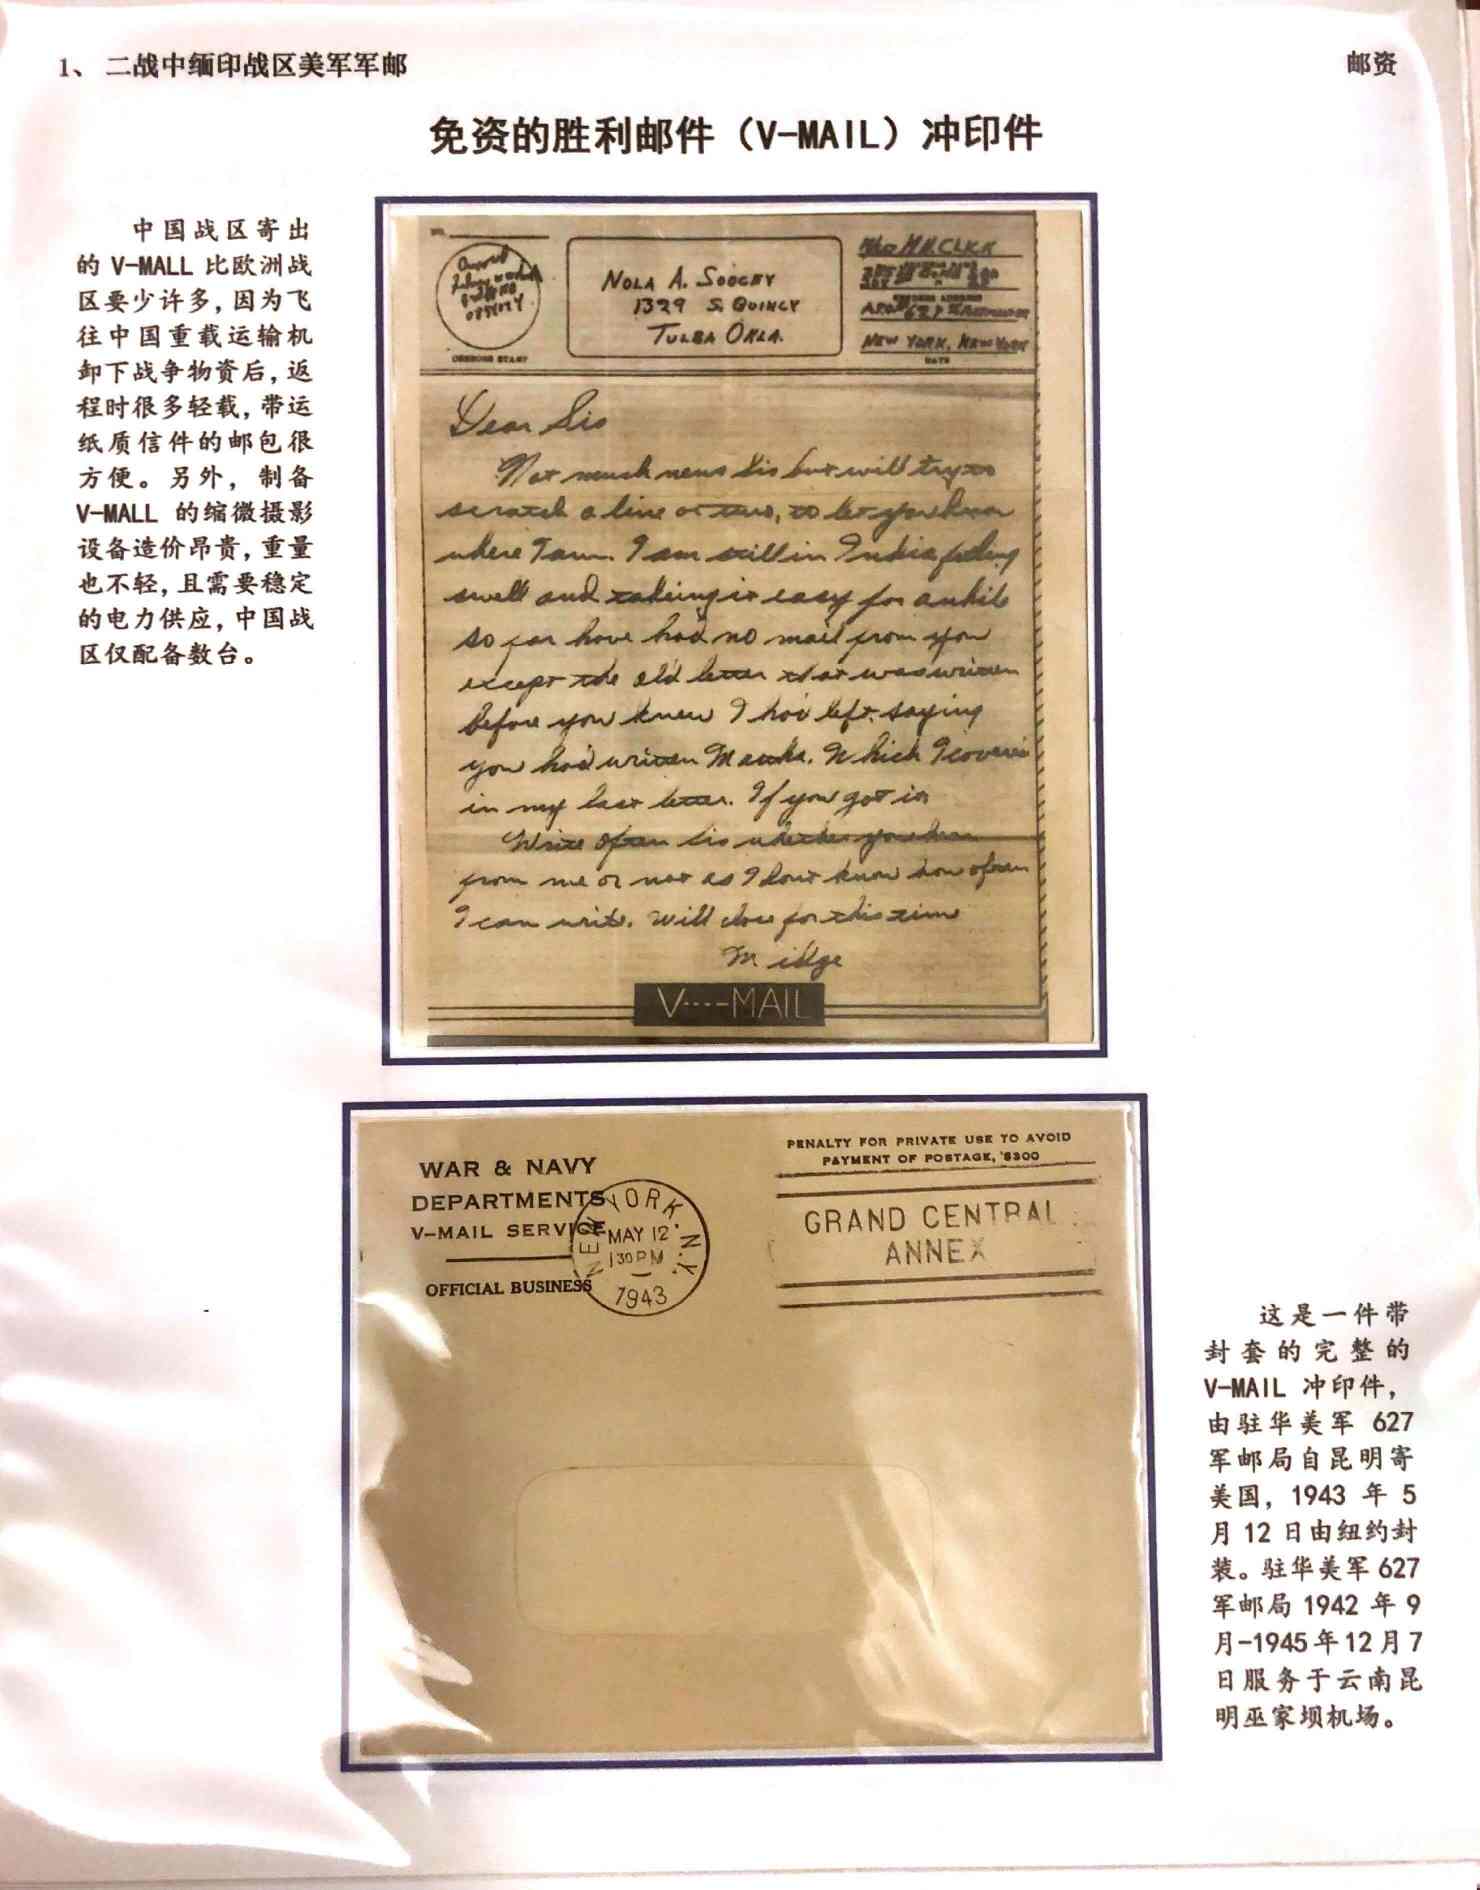 1、 二战中缅印战区美军军邮
邮资
免资的胜利邮件（V-MAIL）冲印件
中国战区寄出
的 V-MALL 比欧洲战
区要少许多，因为飞
往中国重载运输机
卸下战争物资后，返
程时很多轻载，带运
纸质信件的邮包很
方便。另外，制备
V-MALL 的缩微摄影
设备造价昂贵，重量
也不轻，且需要稳定
的电力供应，中国战
区仅配备数台。
NOLA A. SOOCEY
1329 S. QUINCY
TULSA OKLA.
NEW YORK, NEW YORK
DATE
CENSORS STAMP
Dear Sis
Not much news Sis but will try to
scratch a line or two, to let you know
where I am. I am still in India feeling
swell and taking it easy for awhile
so far have had no mail from you
except the old letter that was written
before you knew I had left. saying
you had written. Which I covered
in my last letter. If you got it
Write often sis whether you hear
from me or not as I dont know how often
I can write. Will close for this time
Midge
V····-MAIL
WAR & NAVY
DEPARTMENTS
V-MAIL SERVICE
OFFICIAL BUSINESS
NEW YORK, N.Y.
MAY 12
1 30 PM
1943
PENALTY FOR PRIVATE USE TO AVOID
PAYMENT OF POSTAGE, $300
GRAND CENTRAL
ANNEX
这是一件带
封套的完整的
V-MAIL 冲印件，
由驻华美军 627
军邮局自昆明寄
美国，1943 年 5
月 12 日由纽约封
装。驻华美军 627
军邮局 1942 年 9
月-1945年12月7
日服务于云南昆
明巫家坝机场。